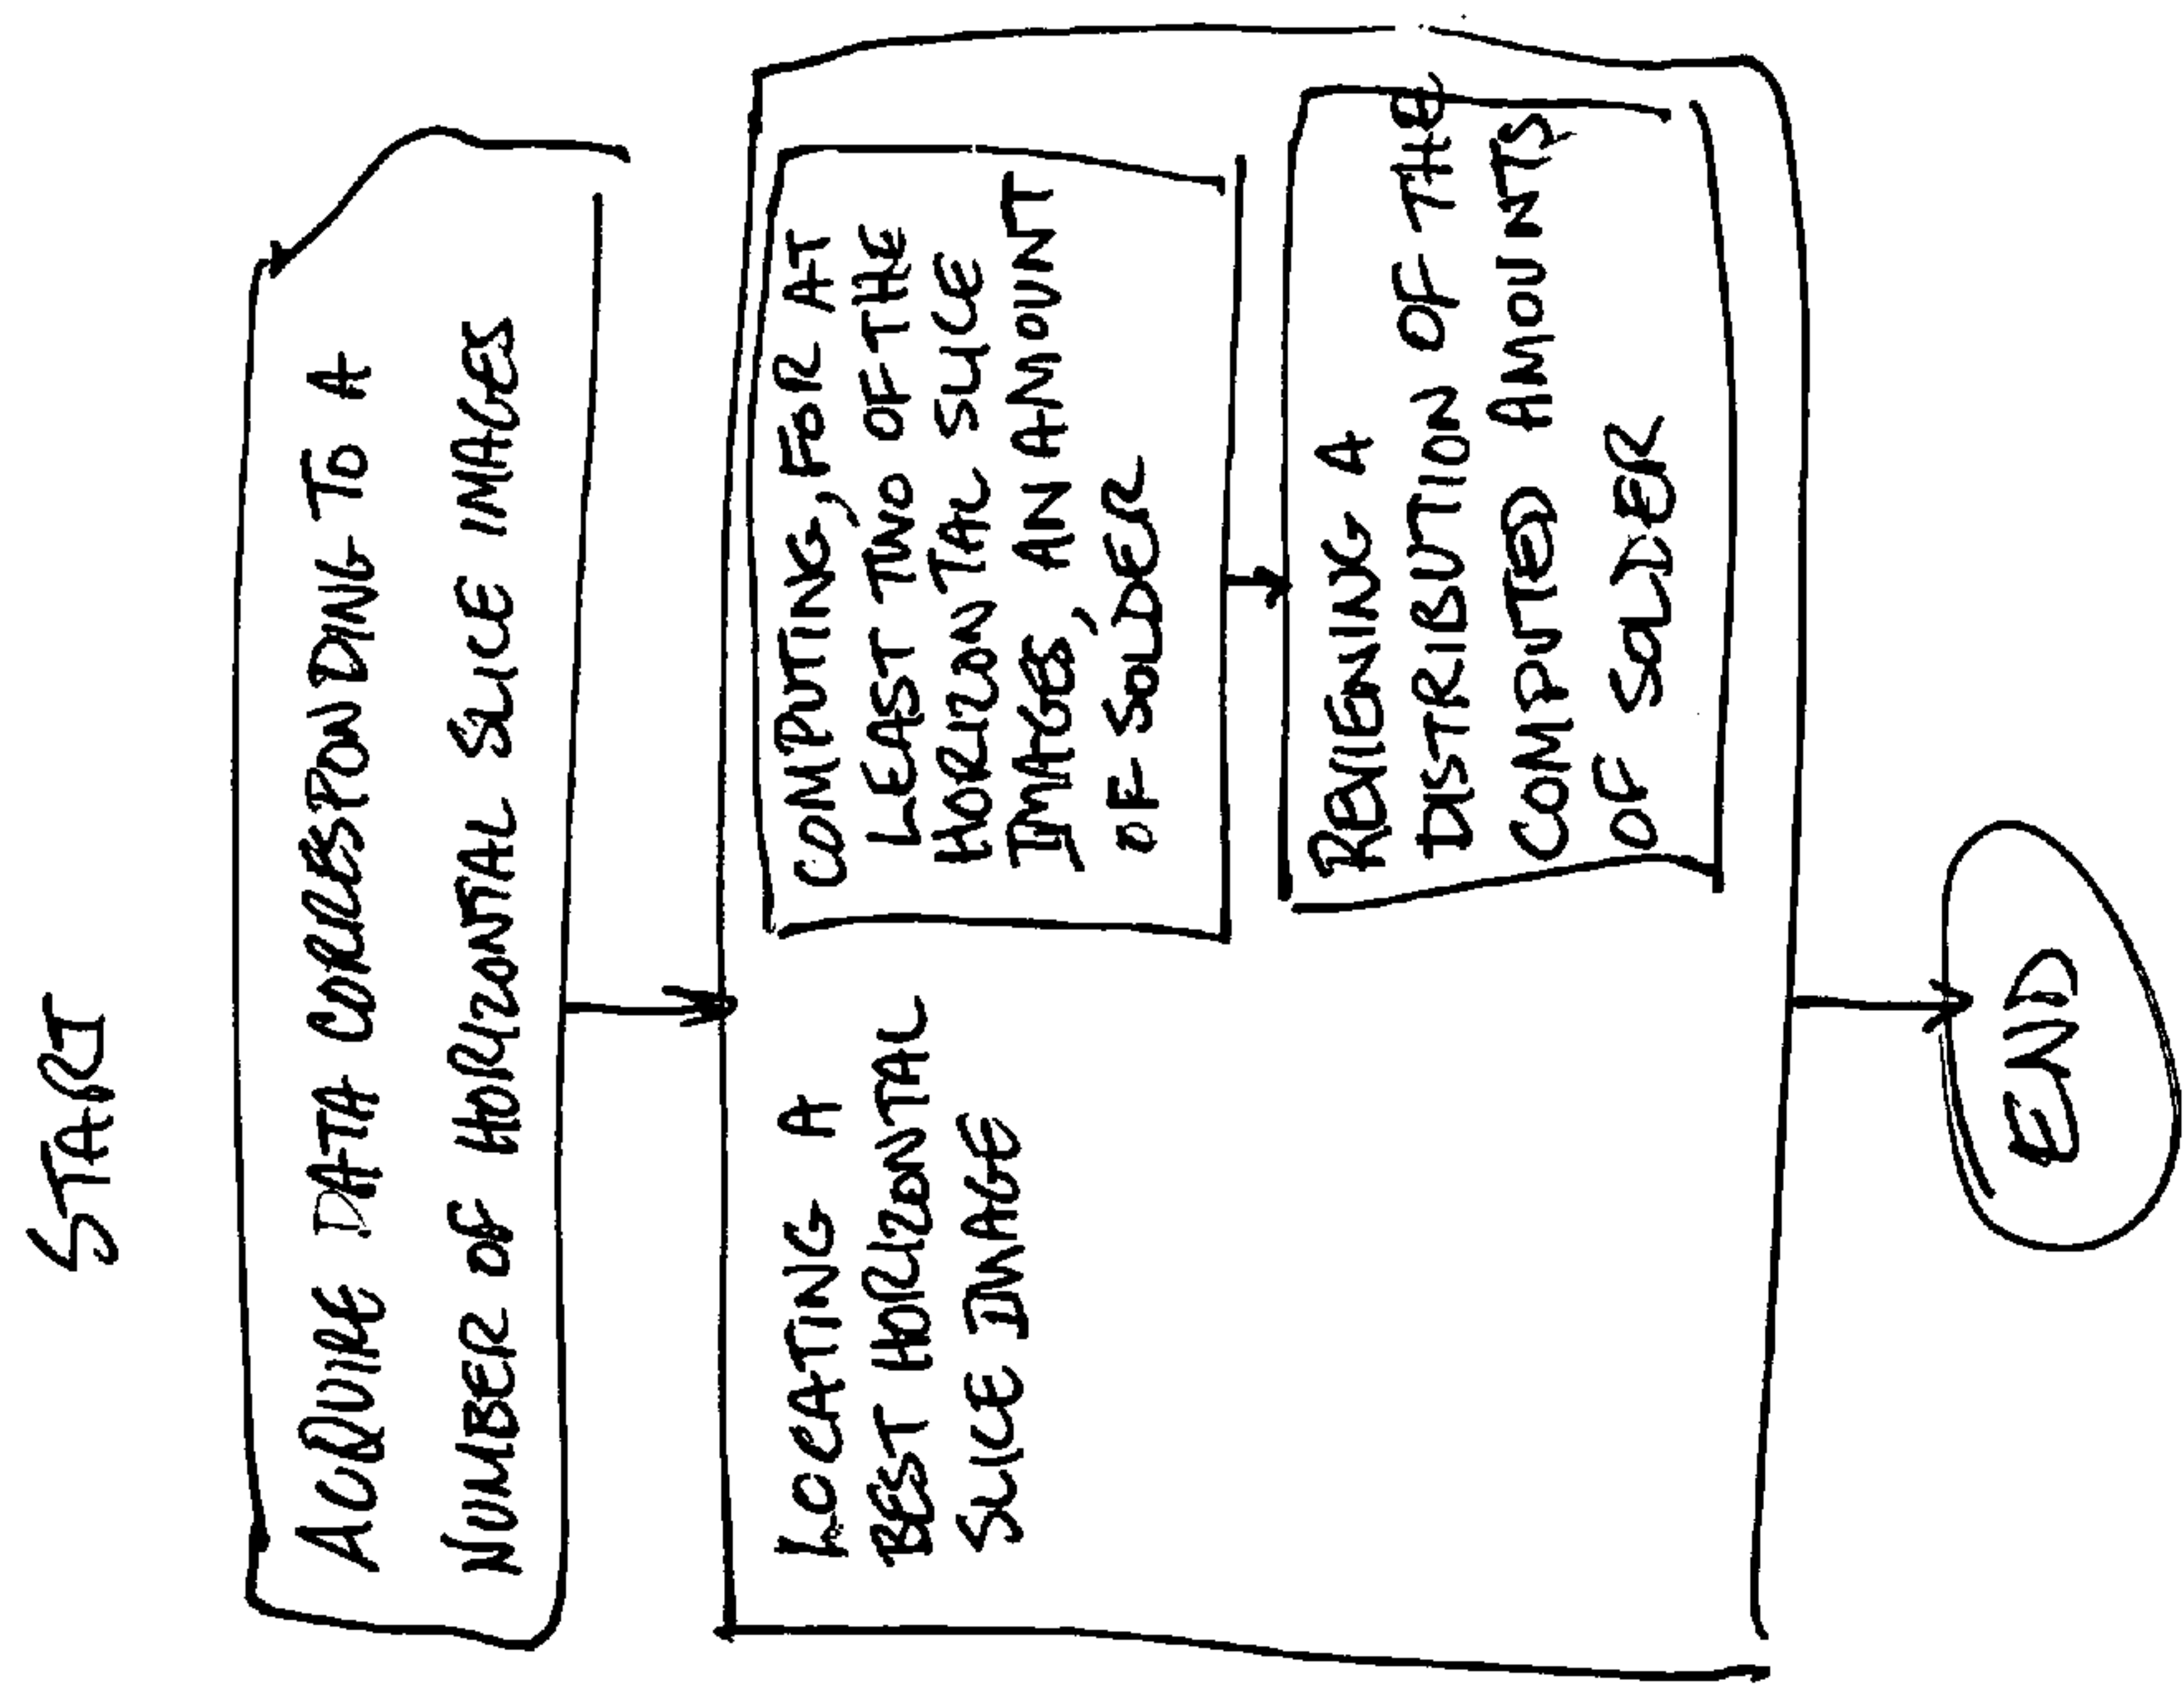 START
ACQUIRE DATA CORRESPONDING TO A
NUMBER OF HORIZONTAL SLICE IMAGES
LOCATING A
BEST HORIZONTAL
SLICE IMAGE
COMPUTING, FOR AT
LEAST TWO OF THE
HORIZONTAL SLICE
IMAGES, AN AMOUNT
OF SOLDER
REVIEWING A
DISTRIBUTION OF THE
COMPUTED AMOUNTS
OF SOLDER
END